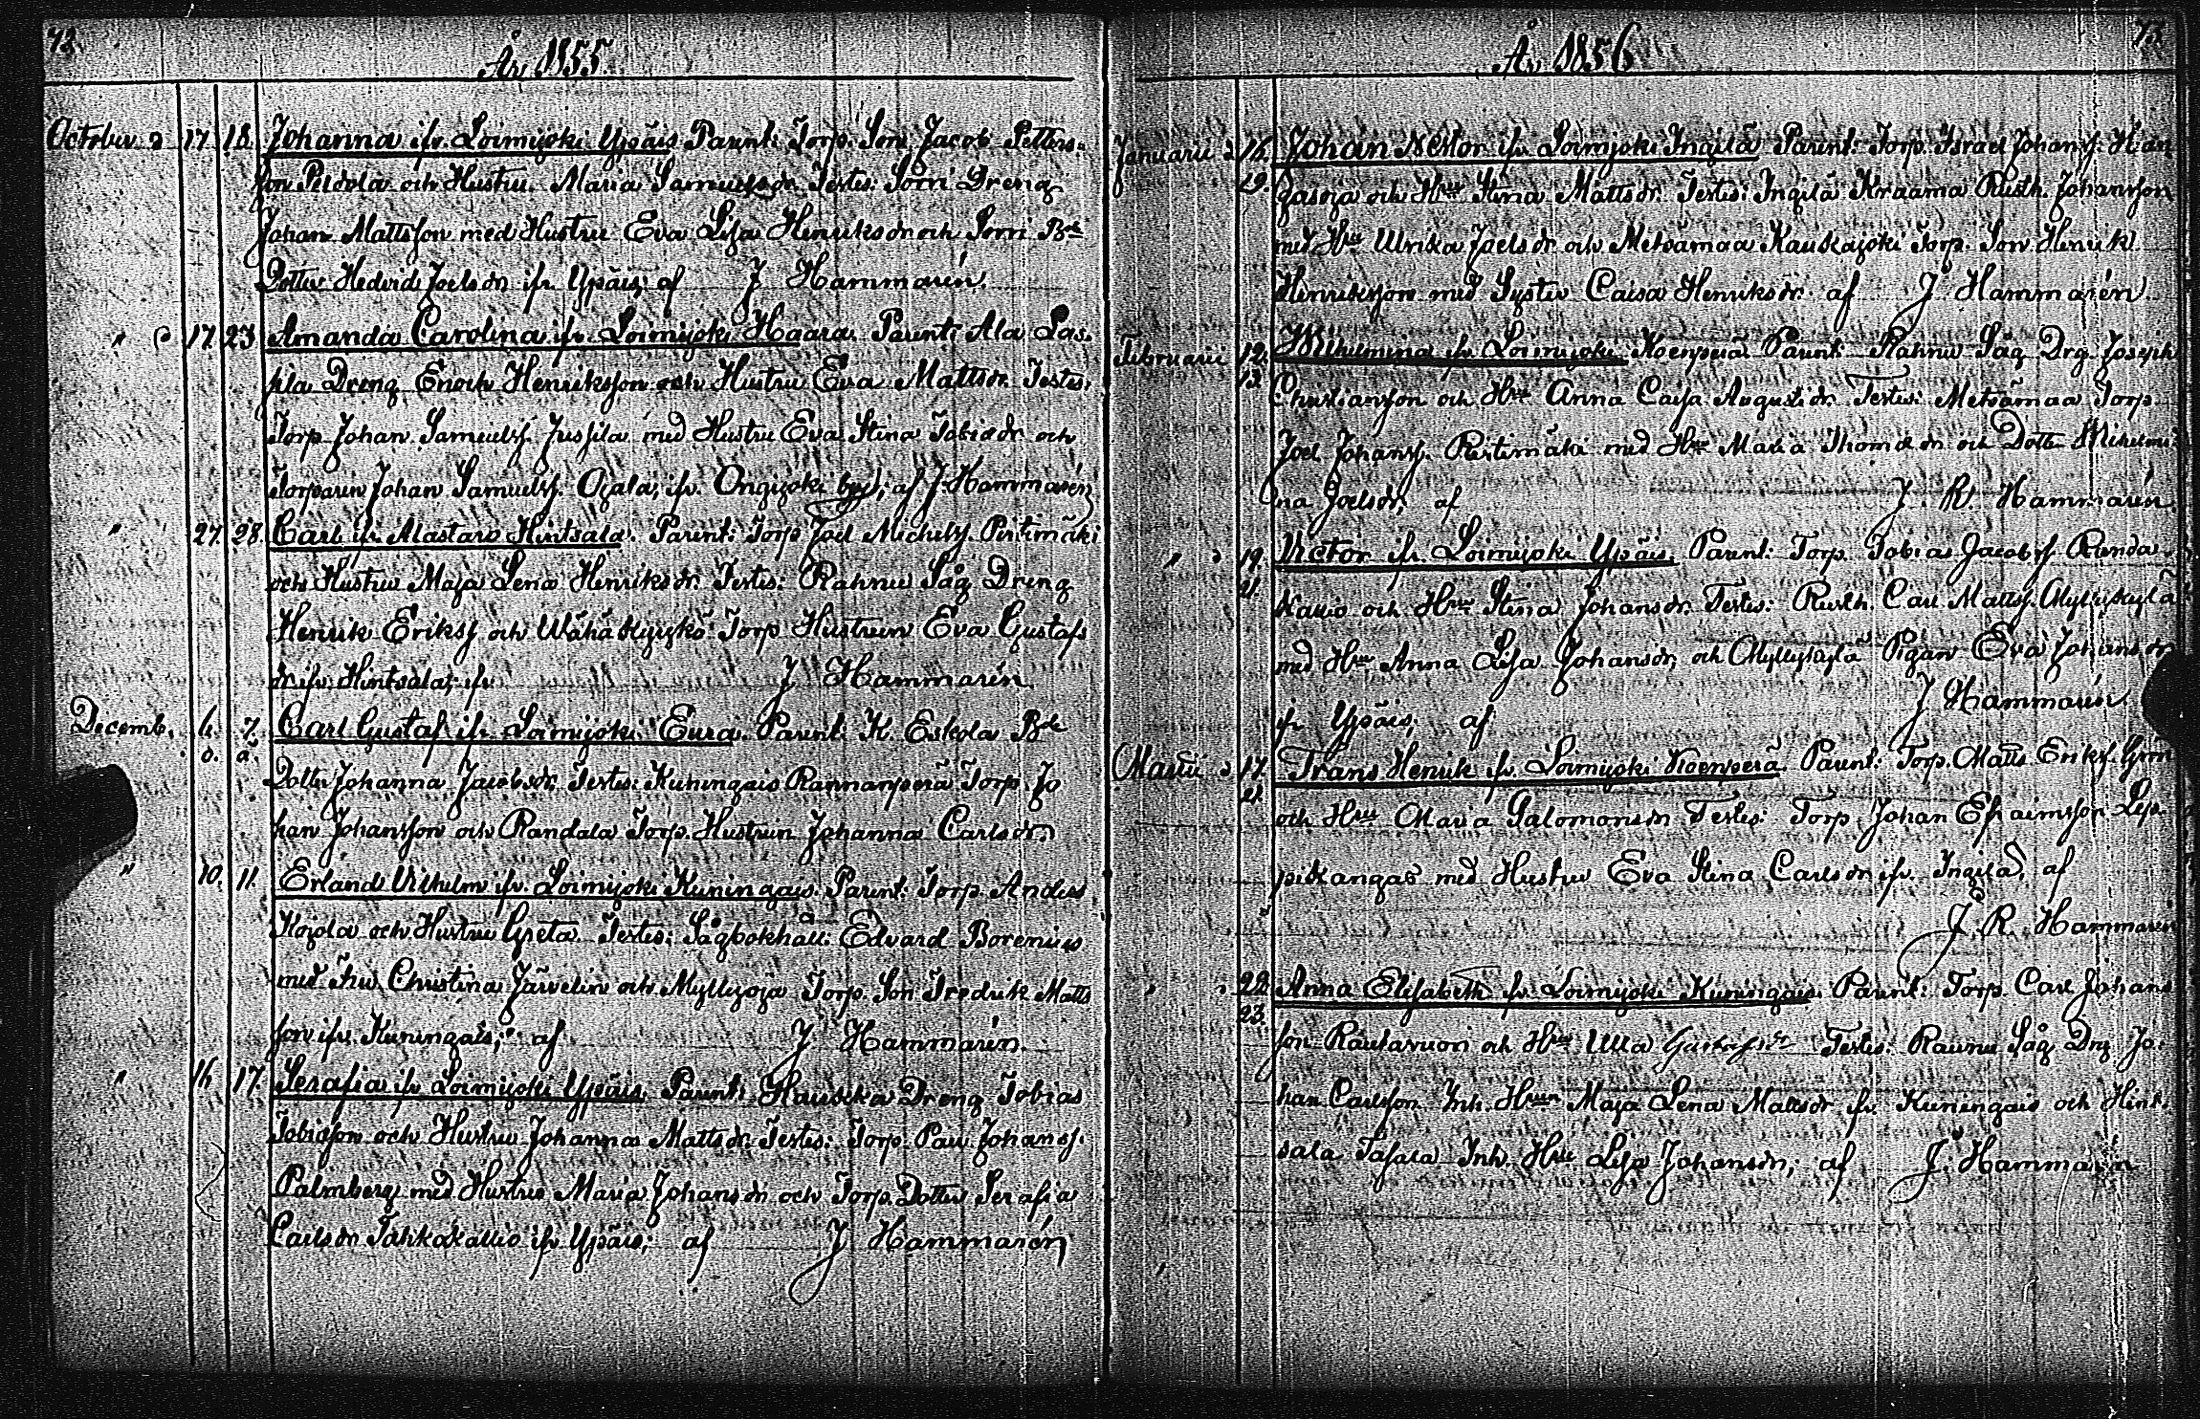 72.
År 1855.
October d 17. 18. Johanna ifr. Loimijoki Ypäis Parent: Torp. Son Jacob Petters-
son Peldola och Hustru Maria Samuelsdr. Testes: Sorri Dreng
Johan Mattsson med Hustru Eva Lisa Henriksdr och Sorri Bde
Dotter Hedvid Joelsdr ifr. Ypäis; af J Hammarén.
" d 17. 23. Amanda Carolina ifr. Loimijoki Haara. Parent: Ala Las-
sila Dreng Enoch Henriksson och Hustru Eva Mattsdr. Testes:
Torp Johan Samuelss. Jussila med Hustru Eva Stina Tobiasdr och
Torparen Johan Samuelss. Ojala, ifr. Ongijoki by; af J. Hammarén
" 27. 28. Carl ifr Alastaro Hintsala. Parent: Torp Joel Michelss. Pirtimäki
och Hustru Maja Lena Henriksdr. Testes: Rahnu Såg Dreng
Henrik Erikss och Wähä Kyrykö Torp Hustrun Eva Gustafs
dr ifr. Hintsala; ifr J Hammarén
Decemb. 6. 7. Carl Gustaf ifr. Loimijoki Eura. Parent: K. Eskola Bde
o. ä.
Dotter Johanna Jacobsdr; Testes: Kuningais Rannanperä Torp. Jo
han Johansson och Randala Torp. Hustrun Johanna Carlsdr.
" 10. 11. Erland Vilhelm ifr. Loimijoki Kuningais. Parent: Torp. Anders
Kojola och Hustru Greta. Testes: Sågbokhåll: Edvard Borenius
med Fru Christina Järvelin och Myllyoja Torp. Son Fredrik Matts
son ifr. Kuningais; af J Hammarén.
" 16 17. Serafia ifr. Loimijoki Ypäis. Parent: Hauska Dreng Tobias
Tobiasson och Hustru Johanna Mattsdr. Testes: Torp. Paul Johanss.
Palmberg med Hustru Maria Johansdr och Torp. Dotter Serafia
Carlsdr Tahkakallio ifr Ypäis; af J Hammarén
73.
År 1856
Januarii d 16. Johan Nestor ifr Loimijoki Ingilä Parent: Torp. Israel Johanss. Han
29. gasoja och Hru Stina Mattsdr. Testes: Ingilä Kraama Rusth. Johansson
med Hru Ulrika Joelsdr och Metsämaa Kauskajoki Torp. Son Henrik
Henriksson med Syster Caisa Henriksdr. af J Hammarén
Februarii 12. Wilhelmina ifr Loimijoki Koenperä Parent Rahnu Såg Drg. Joseph
13. Christiansson och Hru Anna Caisa Augustidr. Testes: Metsämaa Torp
Joel Johanss. Pirtimäki med Hru Maria Thomasdr och Dottr Wilhelmi-
na Joelsdr; af J R. Hammarén
" d 19. Victor ifr. Loimijoki Ypäis. Parent: Torp. Tobias Jacobss Randa
21. kallio och Hru Stina Johansdr. Testes: Rusth. Carl Mattss. Myllykylä
med Hru Anna Lisa Johansdr; och Myllykylä Pigan Eva Johansdr
ifr Ypäis; af J Hammarén
Martii d 17. Frans Henrik ifr. Loimijoki Koenperä. Parent: Torp. Matts Erikss. Grön
21. och Hru Maria Salomonsdr Testes: Torp. Johan Efraimsson Lepi-
pitkangas med Hustru Eva Stina Carlsdr ifr. Ingilä, af
J. R. Hammarén
" " 22. Anna Elisabeth ifr Loimijoki Kuningais. Parent: Torp. Carl Johans
23. son Rautavuori och Hru Ulla Gustafsdr Testes: Raunu Såg Drg Jo-
han Carlsson Inh. Hrun Maja Lena Mattsdr ifr. Kuningais och Hint-
sala Tasala Inh. Hru Lisa Johansdr; af J. Hammarén